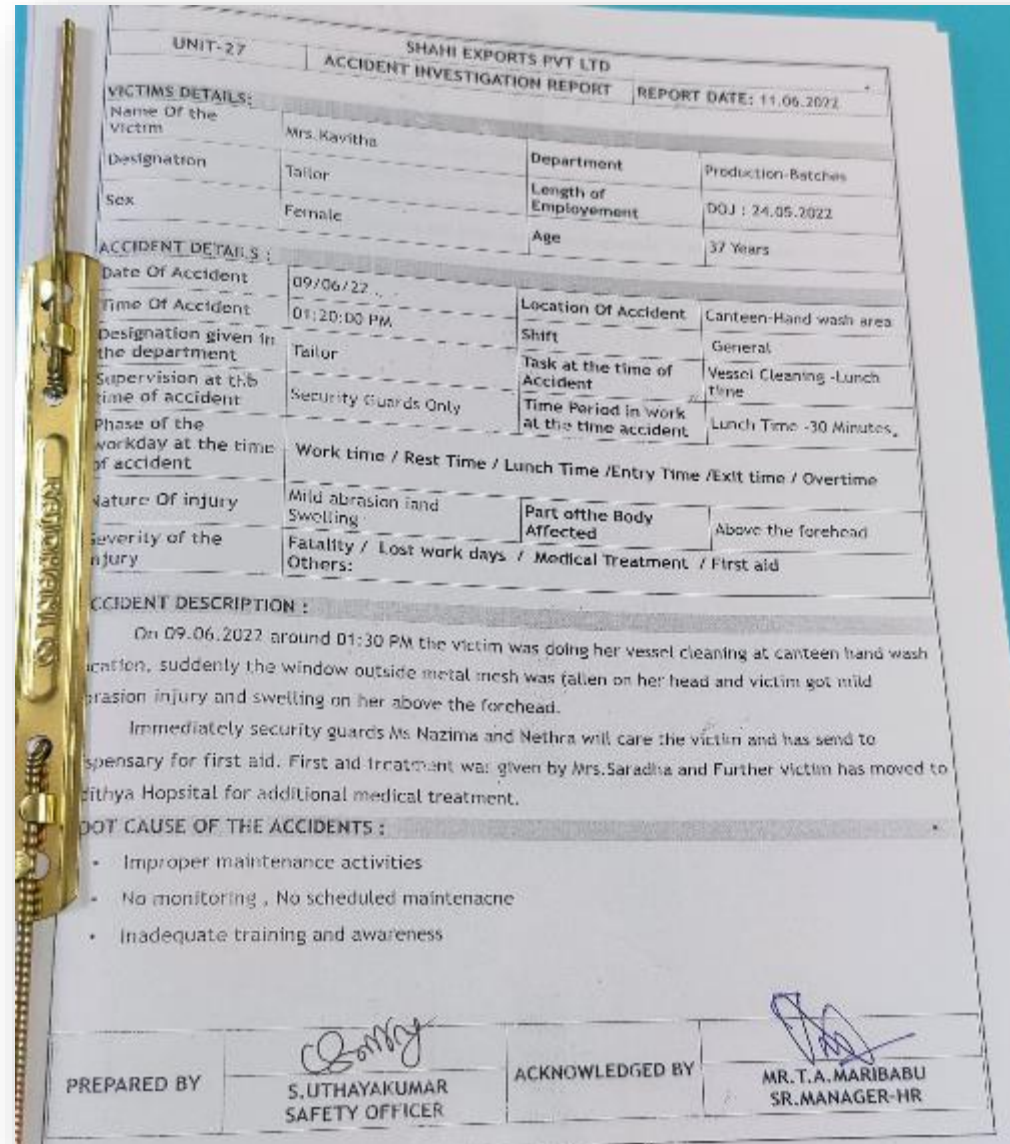 UNIT-27
SHAHI EXPORTS PVT LTD
ACCIDENT INVESTIGATION REPORT
REPORT DATE: 11.06.2022
VICTIMS DETAILS:
Name Of the Victim
Mrs.Kavitha
Department
Production-Batches
Designation
Tailor
Length of Employement
DOJ : 24.05.2022
Sex
Female
Age
37 Years
ACCIDENT DETAILS :
Date Of Accident
09/06/22
Location Of Accident
Canteen-Hand wash area
Time Of Accident
01:20:00 PM
Shift
General
Designation given in
the department
Tailor
Task at the time of
Accident
Vessel Cleaning -Lunch
time
Supervision at the
time of accident
Security Guards Only
Time Period in work
at the time accident
Lunch Time -30 Minutes
Phase of the
workday at the time
of accident
Work time / Rest Time / Lunch Time /Entry Time /Exit time / Overtime
Nature Of injury
Mild abrasion and
Swelling
Part ofthe Body
Affected
Above the forehead
Severity of the
injury
Fatality / Lost work days / Medical Treatment / First aid
Others:
ACCIDENT DESCRIPTION :
On 09.06.2022 around 01:30 PM the victim was doing her vessel cleaning at canteen hand wash
location, suddenly the window outside metal mesh was fallen on her head and victim got mild
abrasion injury and swelling on her above the forehead.
Immediately security guards Ms Nazima and Nethra will care the victim and has send to
dispensary for first aid. First aid treatment was given by Mrs.Saradha and Further victim has moved to
Hopsital for additional medical treatment.
ROOT CAUSE OF THE ACCIDENTS :
- Improper maintenance activities
- No monitoring , No scheduled maintenacne
- Inadequate training and awareness
PREPARED BY
S.UTHAYAKUMAR
SAFETY OFFICER
ACKNOWLEDGED BY
MR.T.A.MARIBABU
SR.MANAGER-HR